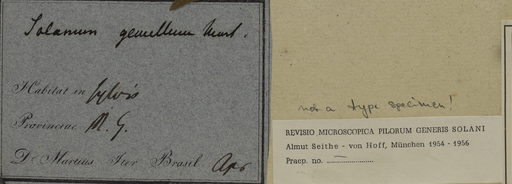 Solanum gemellum Mart.
Habitat in sylvis
Provinciae M. G.
Dr Martius Iter Brasil. Apr
not a type specimen!
REVISIO MICROSCOPICA PILORUM GENERIS SOLANI
Almut Seithe - von Hoff, München 1954 - 1956
Praep. no. –